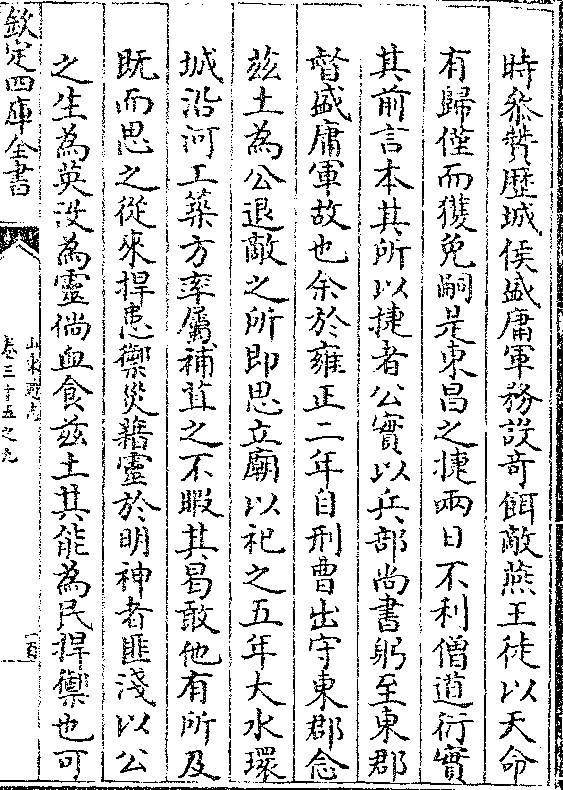 時參贊歴城侯盛庸軍務設奇餌敵燕王徒以天命
有歸僅而獲免嗣是東昌之捷兩日不利僧道衍實
其前言本其所以捷者公實以兵部尚書躬至東郡
督盛庸軍故也余於雍正二年自刑曹出守東郡念
茲土為公退敵之所即思立廟以祀之五年大水環
城沿河工築方率屬補苴之不暇其曷敢他有所及
既而思之從來捍患禦災藉靈於明神者匪淺以公
之生為英沒為靈倘血食茲土其能為民捍禦也可
欽定四庫全書
卷三十五之九